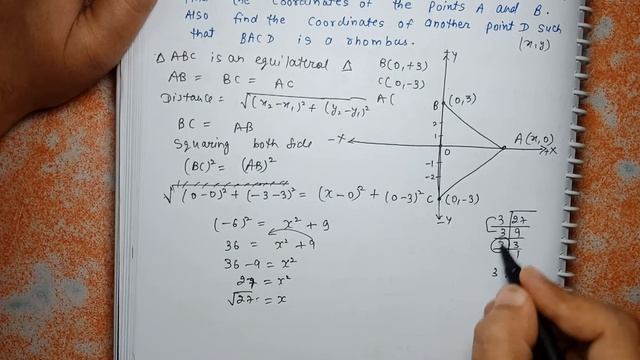 the Coordinates of the Points A and B.
Also find the Coordinates of another point D such
that BACD is a rhombus.
(x,y)
△ ABC is an equilateral △
B(0,+3)
AB = BC = AC
C(0,-3)
Distance = √(x₂-x₁)²+(y₂-y₁)²
A(
BC = AB
Squaring both side
(BC)² = (AB)²
√(0-0)²+(-3-3)² = (x-0)²+(0-3)²
(-6)² = x²+9
36 = x²+9
36-9 = x²
27 = x²
√27 = x
+Y
B
(0,3)
2
1
-X
0
A(x,0)
X
-1
-2
C
(0,-3)
-Y
3 27
3 9
3 3
1
3